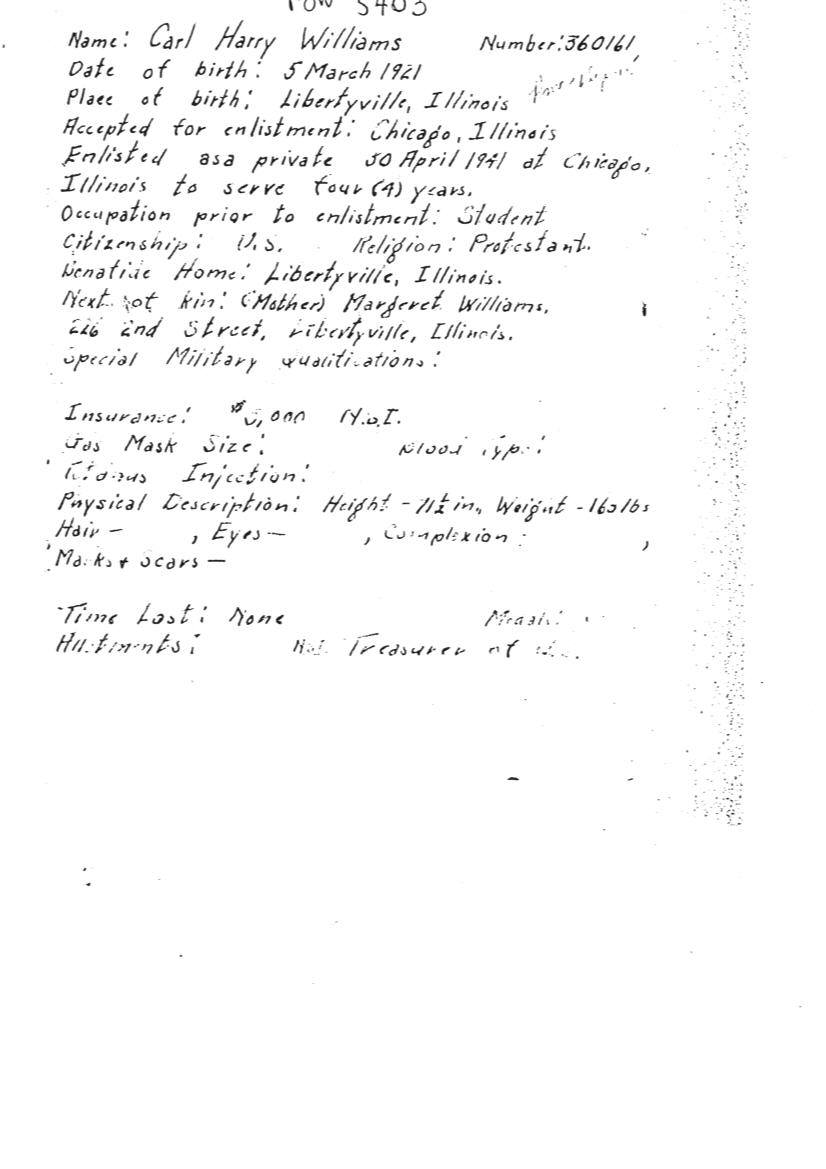 POW 5403
Name: Carl Harry Williams Number: 360161
Date of birth: 5 March 1921
Place of birth: Libertyville, Illinois
Accepted for enlistment: Chicago, Illinois
Enlisted as a private 30 April 1941 at Chicago,
Illinois to serve four (4) years.
Occupation prior to enlistment: Student
Citizenship: U.S. Religion: Protestant.
Home: Libertyville, Illinois.
Next of kin: (Mother) Margeret Williams,
226 2nd Street, Libertyville, Illinois.
Special Military qualifications:
Insurance: ,000
Gas Mask Size: Blood Type:
Tetanus Injection:
Physical Description: Height - 71½ in., Weight - lbs
Hair - , Eyes - , Complexion - ,
Marks & Scars -
Time Lost: None
Allotments: Treasurer of